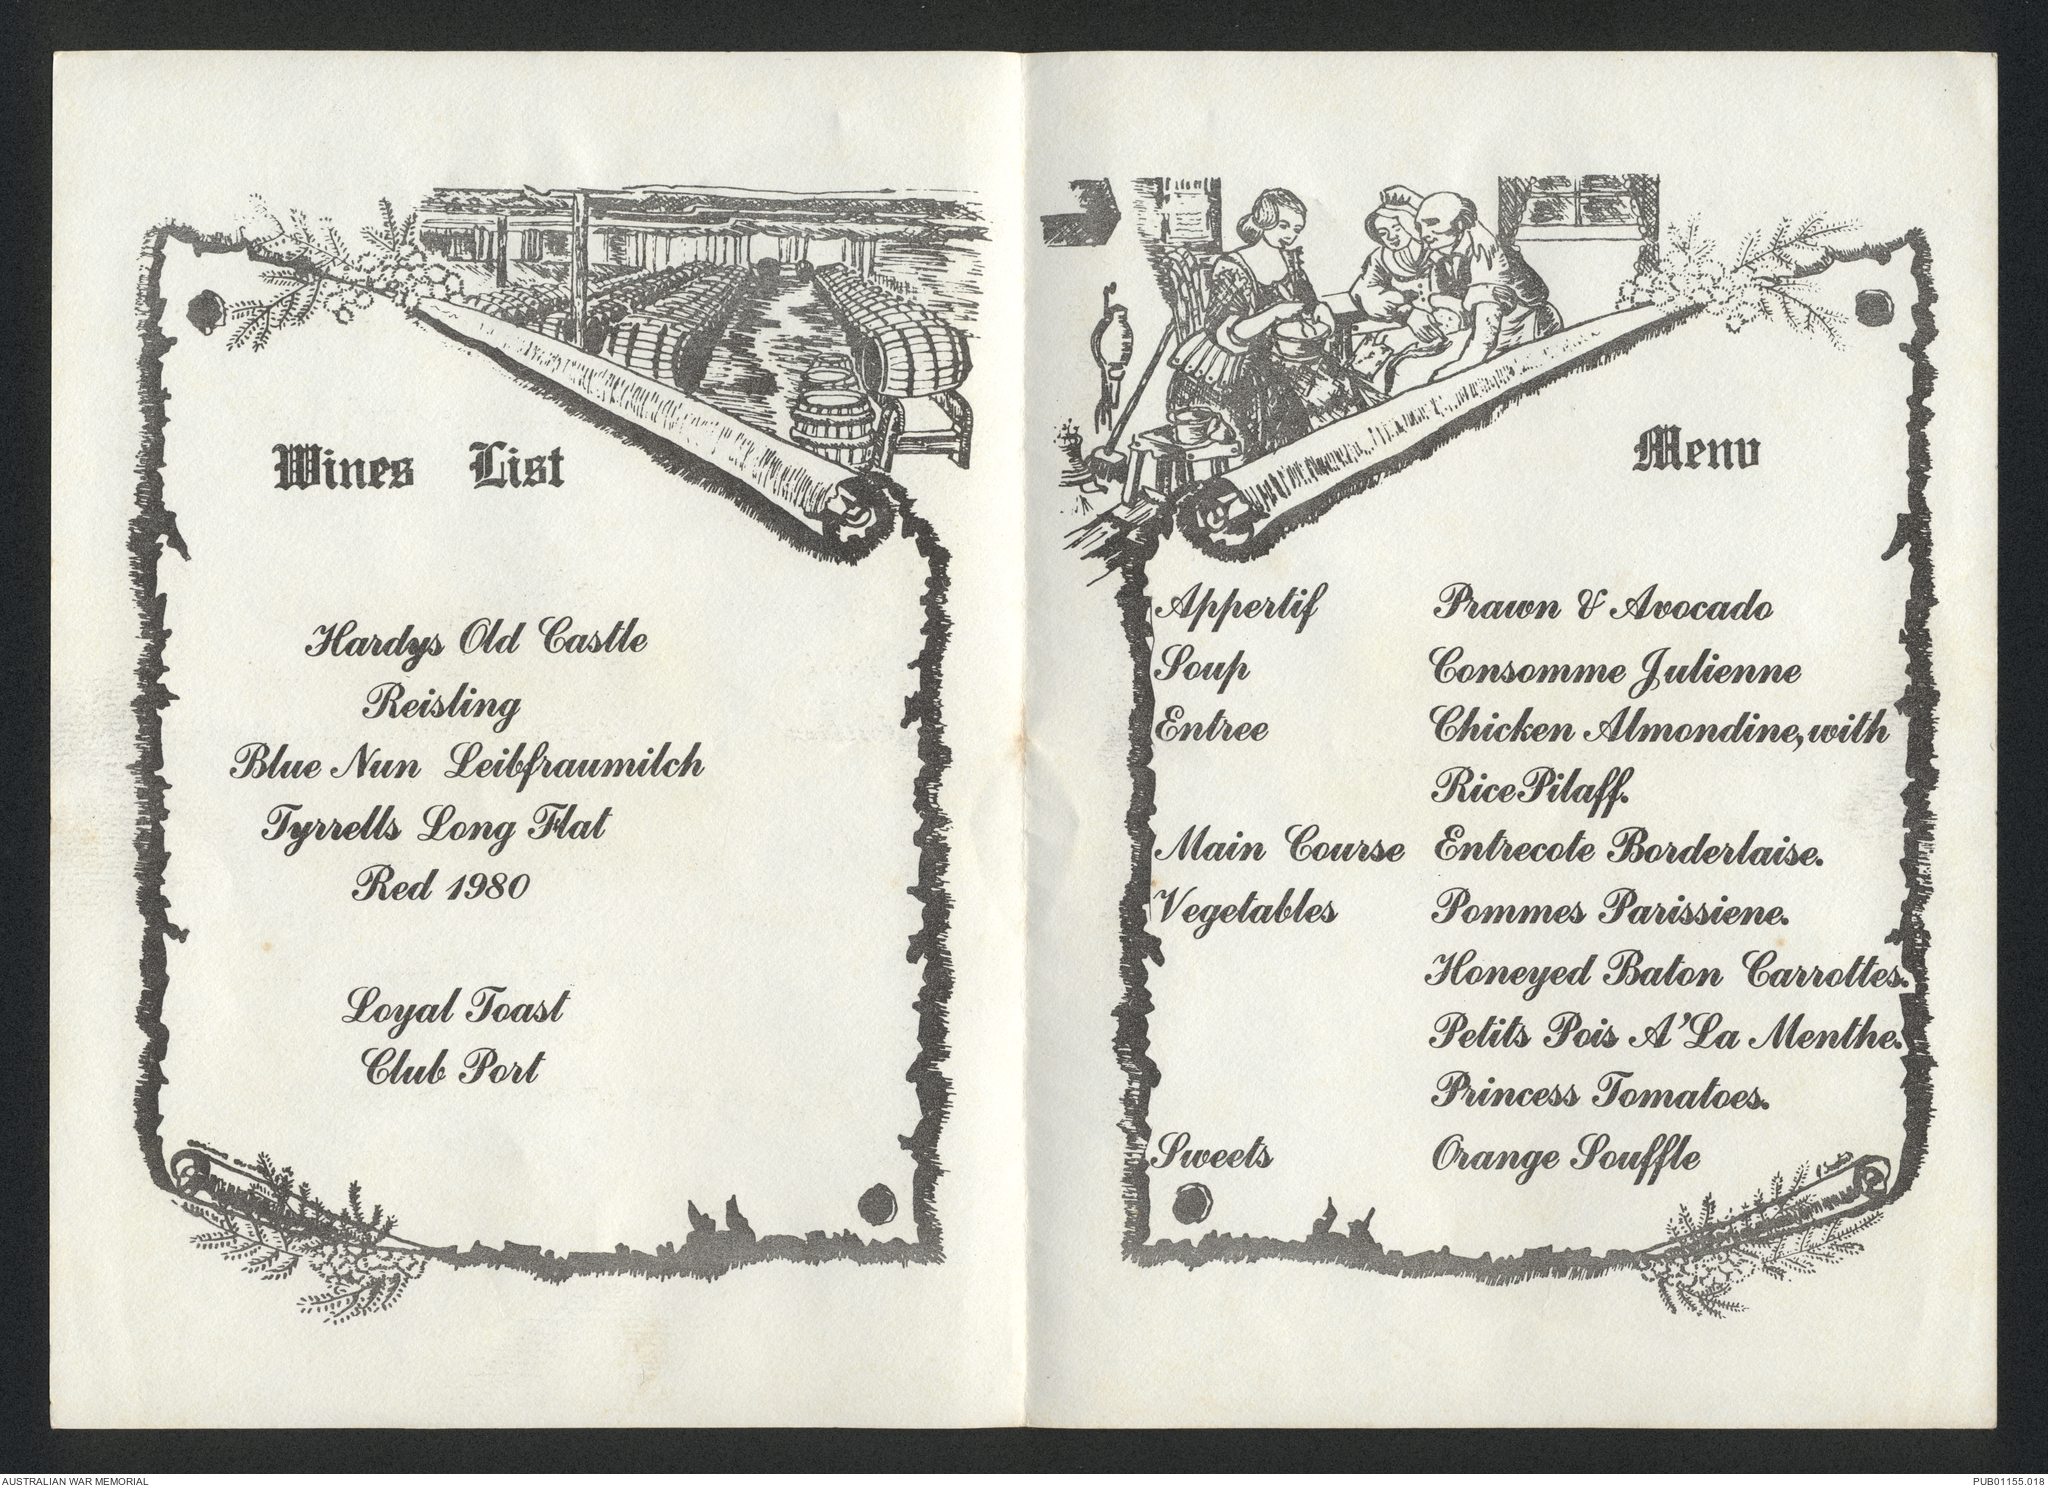 Wines List
Hardys Old Castle
Reisling
Blue Nun Leibfraumilch
Tyrrells Long Flat
Red 1980
Loyal Toast
Club Port
Menu
Appertif Prawn & Avocado
Soup Consomme Julienne
Entree Chicken Almondine, with
Rice Pilaff.
Main Course Entrecote Borderlaise.
Vegetables Pommes Parissiene.
Honeyed Baton Carrottes.
Petits Pois A'La Menthe.
Princess Tomatoes.
Sweets Orange Souffle
AUSTRALIAN WAR MEMORIAL
PUB01155.018